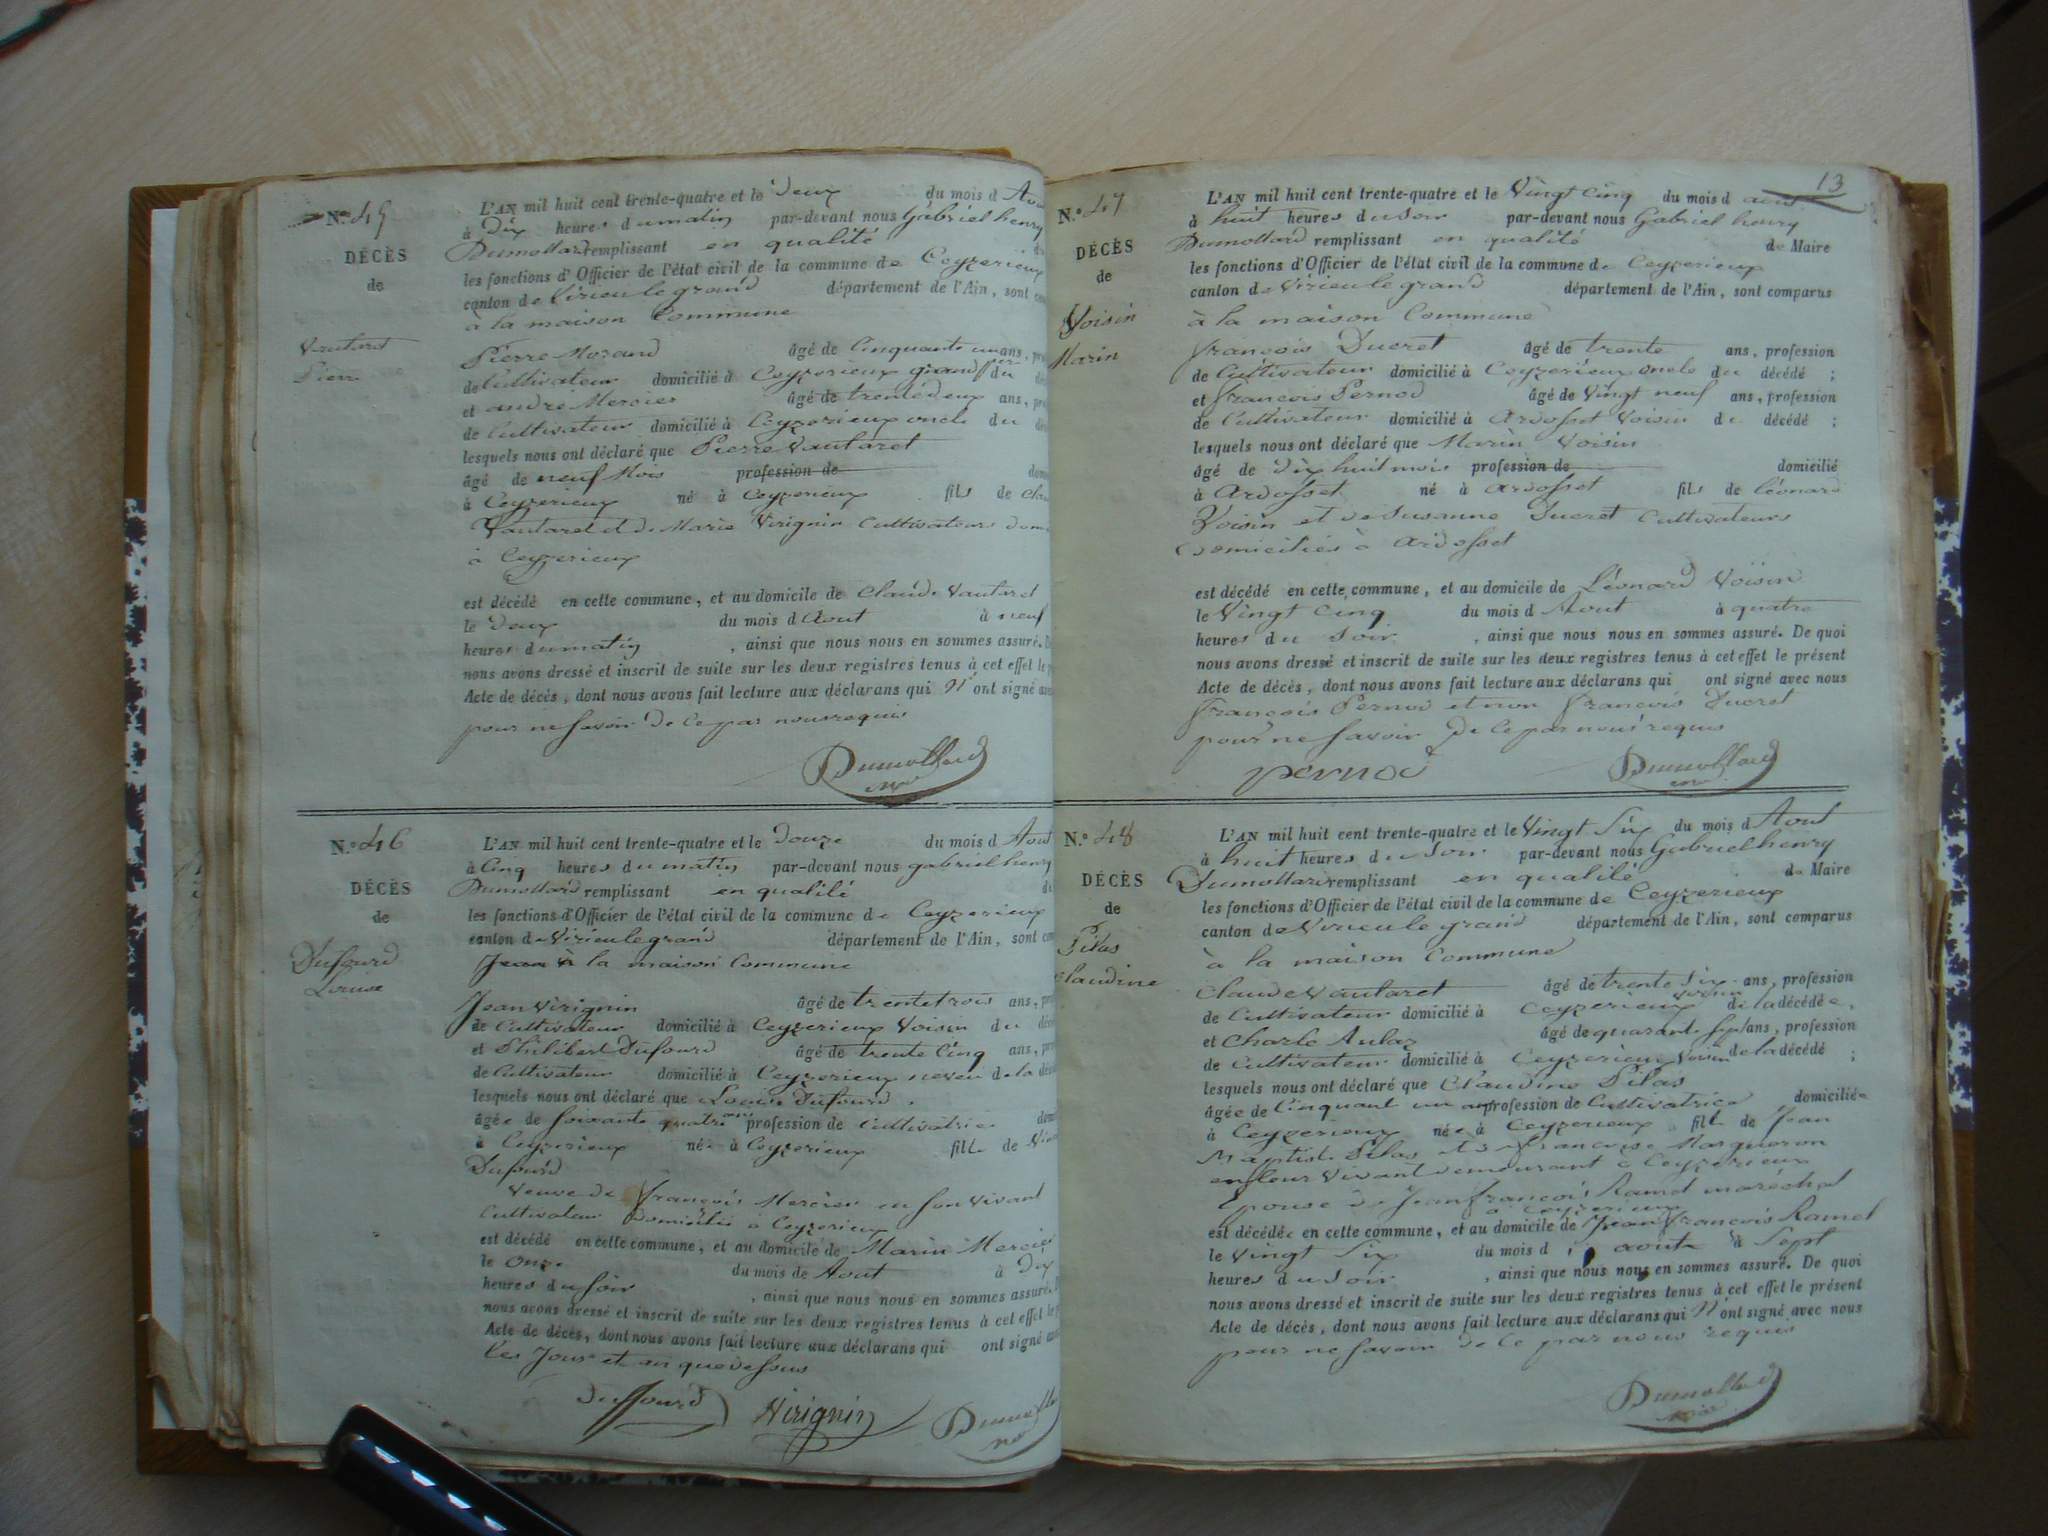 N.º 45
DÉCÈS
de
Vautaret
Pierre
L'AN mil huit cent trente-quatre et le deux du mois d Aou
à Dix heures du matin par-devant nous Gabriel henry
Dumollard remplissant en qualité
les fonctions d'Officier de l'état civil de la commune de Ceyzerieux
canton de Virieu le grand département de l'Ain, sont
à la maison Commune
Pierre Morand âgé de Cinquante un ans,
de Cultivateur domicilié à Ceyzerieux grand du
et andre Mercier âgé de trente deux ans,
de Cultivateur domicilié à Ceyzerieux oncle du
lesquels nous ont déclaré que Pierre Vautaret
âgé de neuf Mois profession de
à Ceyzerieux né à Ceyzerieux fils de
Vautaret et de Marie Virignin Cultivateurs
à Ceyzerieux
est décédé en cette commune, et au domicile de Claude Vautaret
le deux du mois d Aout à neuf
heures du matin , ainsi que nous nous en sommes assuré.
nous avons dressé et inscrit de suite sur les deux registres tenus à cet effet le
Acte de décès, dont nous avons fait lecture aux déclarans qui N' ont signé
pour ne savoir de ce par nous requis
Dumollard
N.º 46
DÉCÈS
de
Dufourd
Louise
L'AN mil huit cent trente-quatre et le douze du mois d Aout
à Cinq heures du matin par-devant nous gabriel henry
Dumollard remplissant en qualité
les fonctions d'Officier de l'état civil de la commune de Ceyzerieux
canton de Virieu le grand département de l'Ain, sont
Jean à la maison Commune
Jean Virignin âgé de trente trois ans,
de Cultivateur domicilié à Ceyzerieux Voisin du
et Philibert Dufourd âgé de trente Cinq ans,
de Cultivateur domicilié à Ceyzerieux neveu de la
lesquels nous ont déclaré que Louise Dufourd
âgée de soixante quatre ans profession de Cultivatrice
à Ceyzerieux née à Ceyzerieux fille de
Dufourd
Veuve de françois Mercier en son vivant
Cultivateur domicilié à Ceyzerieux
est décédé en cette commune, et au domicile de Marin Mercier
le onze du mois de Aout à Dix
heures du soir , ainsi que nous nous en sommes assuré.
nous avons dressé et inscrit de suite sur les deux registres tenus à cet effet le
Acte de décès, dont nous avons fait lecture aux déclarans qui ont signé
les Jour et an que dessus
Duffourd Virignin Dumollard
13
N.º 47
DÉCÈS
de
Voisin
Marin
L'AN mil huit cent trente-quatre et le Vingt Cinq du mois d aout
à huit heures du soir par-devant nous Gabriel henry
Dumollard remplissant en qualité de Maire
les fonctions d'Officier de l'état civil de la commune de Ceyzerieux
canton de Virieu le grand département de l'Ain, sont comparus
à la maison Commune
françois Ducret âgé de trente ans, profession
de Cultivateur domicilié à Ceyzerieux oncle du décédé ;
et françois Pernod âgé de Vingt neuf ans, profession
de Cultivateur domicilié à Ardosset Voisin du décédé ;
lesquels nous ont déclaré que Marin Voisin
âgé de dix huit mois profession de domicilié
à Ardosset né à Ardosset fils de léonard
Voisin et de Susanne Ducret Cultivateurs
domiciliés à Ardosset
est décédé en cette commune, et au domicile de Léonard Voisin
le Vingt Cinq du mois d Aout à quatre
heures du soir , ainsi que nous nous en sommes assuré. De quoi
nous avons dressé et inscrit de suite sur les deux registres tenus à cet effet le présent
Acte de décès, dont nous avons fait lecture aux déclarans qui ont signé avec nous
françois Pernod et non françois Ducret
pour ne savoir de ce par nous requis
pernod Dumollard
N.º 48
DÉCÈS
de
Pilas
Claudine
L'AN mil huit cent trente-quatre et le Vingt Six du mois d Aout
à huit heures du Soir par-devant nous Gabriel henry
Dumollard remplissant en qualité de Maire
les fonctions d'Officier de l'état civil de la commune de Ceyzerieux
canton de Virieu le grand département de l'Ain, sont comparus
à la maison Commune
Claude Vautaret âgé de trente Six ans, profession
de Cultivateur domicilié à Ceyzerieux voisin de la décédée,
et Charle Aulaz âgé de quarante sept ans, profession
de Cultivateur domicilié à Ceyzerieux Voisin de la décédé ;
lesquels nous ont déclaré que Claudine Pilas
âgée de Cinquant un ans profession de Cultivatrice domiciliée
à Ceyzerieux née à Ceyzerieux fille de Jean
Baptiste Pilas et de françoise Marqueron
en leur Vivant demeurant à Ceyzerieux
Epouse de Jean françois Ramel maréchal
à Ceyzerieux
est décédée en cette commune, et au domicile de Jean françois Ramel
le Vingt Six du mois d aout à Sept
heures du soir , ainsi que nous nous en sommes assuré. De quoi
nous avons dressé et inscrit de suite sur les deux registres tenus à cet effet le présent
Acte de décès, dont nous avons fait lecture aux déclarans qui N' ont signé avec nous
pour ne savoir de ce par nous requis
Dumollard